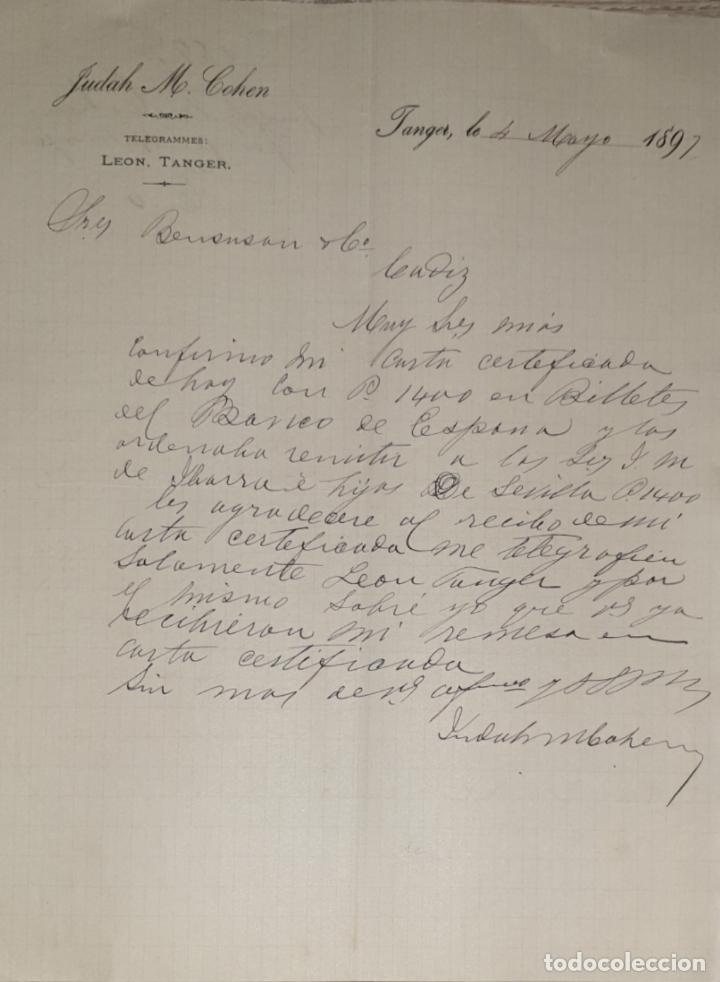 Judah M. Cohen
TELEGRAMMES:
LEON, TANGER.
Tanger, le 4 Mayo 1897
Sres Bensusan & Co
Cadiz
Muy Sres mios
Confirmo mi carta certificada
de hoy con P. 1400 en Billetes
del Banco de España y los
ordenaba remitir a los Sres J. M
de Ibarra é hijos de Sevilla P. 1400
les agradecere al recibo de mi
carta certificada me telegrafien
Solamente Leon Tanger y por
el mismo sabré yo que vs ya
recibieron mi remesa en
carta certificada
Sin mas de vs afmo y
Judah M Cohen
todocoleccion